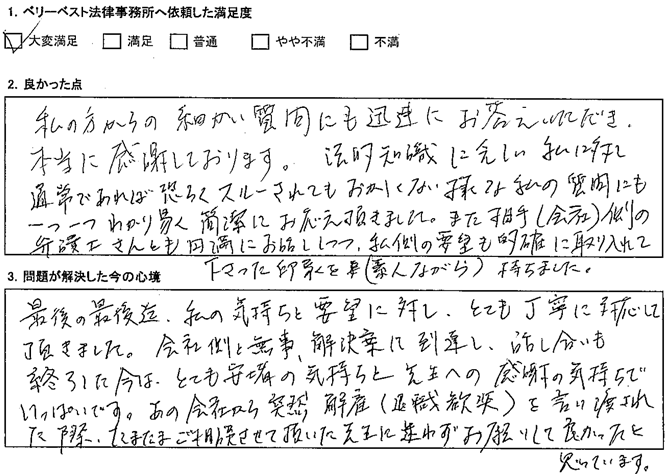 1. ベリーベスト法律事務所へ依頼した満足度
大変満足 満足 普通 やや不満 不満
2. 良かった点
私の方からの細かい質問にも迅速にお答えいただき、
本当に感謝しております。法的知識に乏しい私に対し
通常であれば恐らくスルーされてもおかしくない様な私の質問にも
一つ一つわかり易く簡潔にお応え頂きました。また相手(会社)側の
弁護士さんとも円満にお話しつつ、私側の要望も的確に取り入れて
下さった印象を(素人ながら)持ちました。
3. 問題が解決した今の心境
最後の最後迄、私の気持ちと要望に対し、とても丁寧に対応して
頂きました。会社側と無事、解決案に到達し、話し合いも
終了した今は、とても安堵の気持ちと先生への感謝の気持ちで
いっぱいです。あの会社から突然解雇(退職勧奨)を言い渡され
た際、たまたまご相談させて頂いた先生に迷わずお願いして良かったと
思っています。